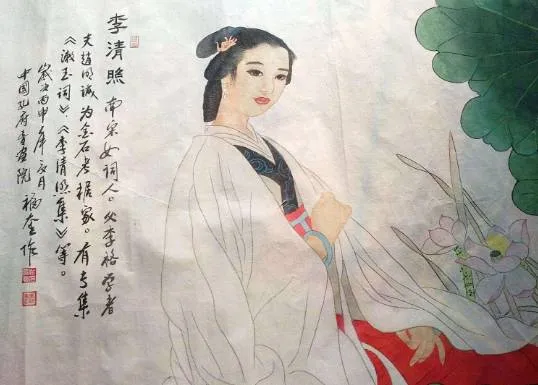 李清照 南宋女词人。父李格学者
夫赵明诚为金石考据家。有专集
《漱玉词》、《李清照集》等。
岁次丙申年月
中国孔府书画院 福奎作